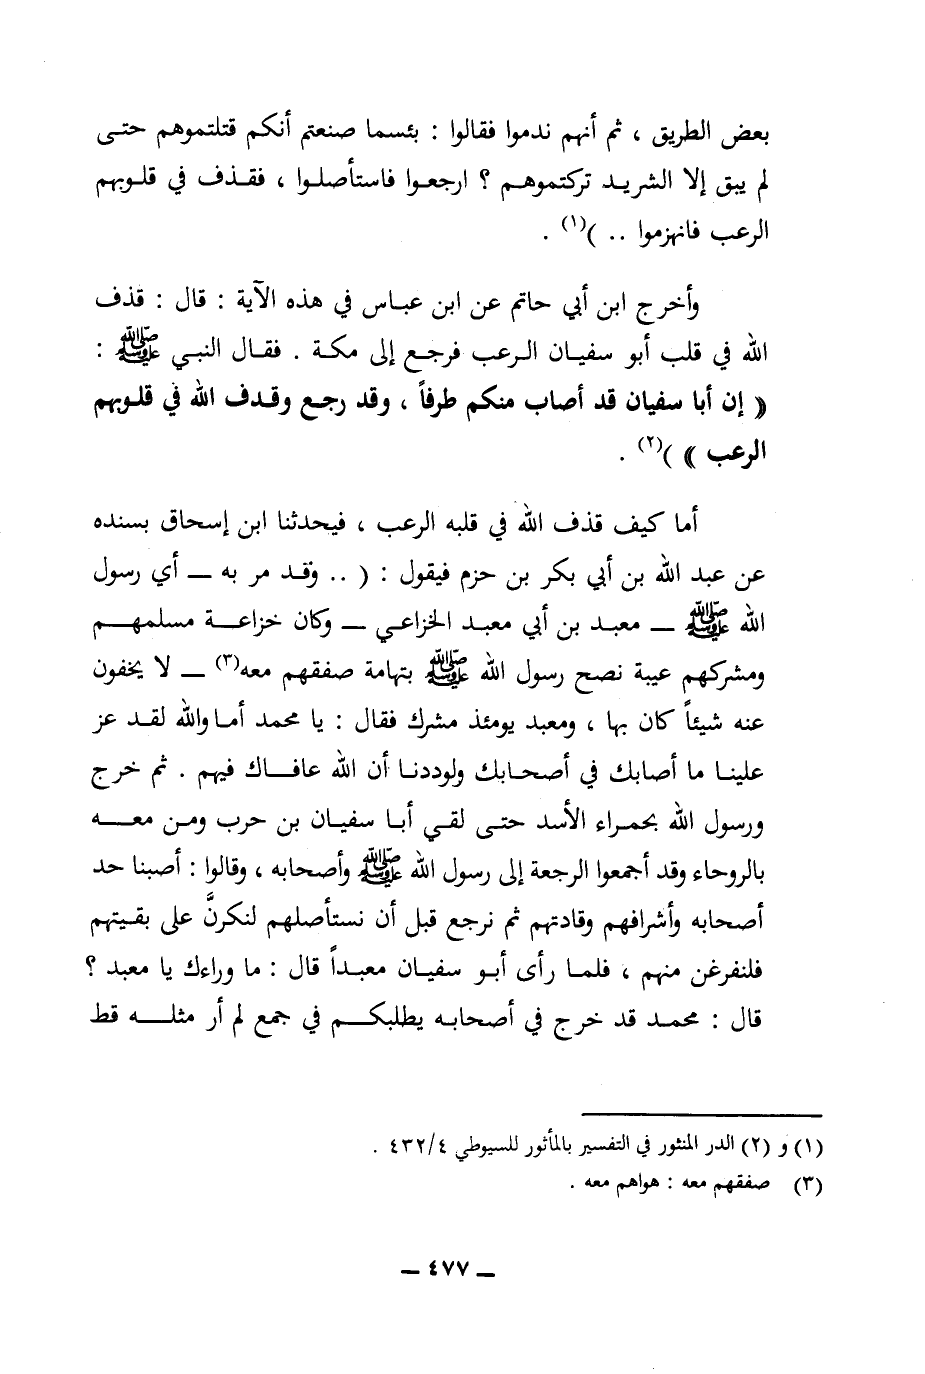 بعض الطريق ، ثم أنهم ندموا فقالوا : بئسما صنعتم أنكم قتلتموهم حتى
لم يبق إلا الشريد تركتموهم ؟ ارجعوا فاستأصلوا ، فقذف في قلوبهم
الرعب فانهزموا .. )(١) .
وأخرج ابن أبي حاتم عن ابن عباس في هذه الآية : قال : قذف
الله في قلب أبو سفيان الرعب فرجع إلى مكة . فقال النبي ﷺ :
« إن أبا سفيان قد أصاب منكم طرفاً ، وقد رجع وقدف الله في قلوبهم
الرعب » )(٢) .
أما كيف قذف الله في قلبه الرعب ، فيحدثنا ابن إسحاق بسنده
عن عبد الله بن أبي بكر بن حزم فيقول : ( .. وقد مر به ـ أي رسول
الله ﷺ ـ معبد بن أبي معبد الخزاعي ـ وكان خزاعة مسلمهم
ومشركهم عيبة نصح رسول الله ﷺ بتهامة صفقهم معه(٣) ـ لا يخفون
عنه شيئاً كان بها ، ومعبد يومئذ مشرك فقال : يا محمد أما والله لقد عز
علينا ما أصابك في أصحابك ولوددنا أن الله عافاك فيهم . ثم خرج
ورسول الله بحمراء الأسد حتى لقي أبا سفيان بن حرب ومن معه
بالروحاء وقد أجمعوا الرجعة إلى رسول الله ﷺ وأصحابه ، وقالوا : أصبنا حد
أصحابه وأشرافهم وقادتهم ثم نرجع قبل أن نستأصلهم لنكرنَّ على بقيتهم
فلنفرغن منهم ، فلما رأى أبو سفيان معبداً قال : ما وراءك يا معبد ؟
قال : محمد قد خرج في أصحابه يطلبكم في جمع لم أر مثله قط
(١) و (٢) الدر المنثور في التفسير بالمأثور للسيوطي ٤٣٢/٤ .
(٣) صفقهم معه : هواهم معه .
ـ ٤٧٧ ـ